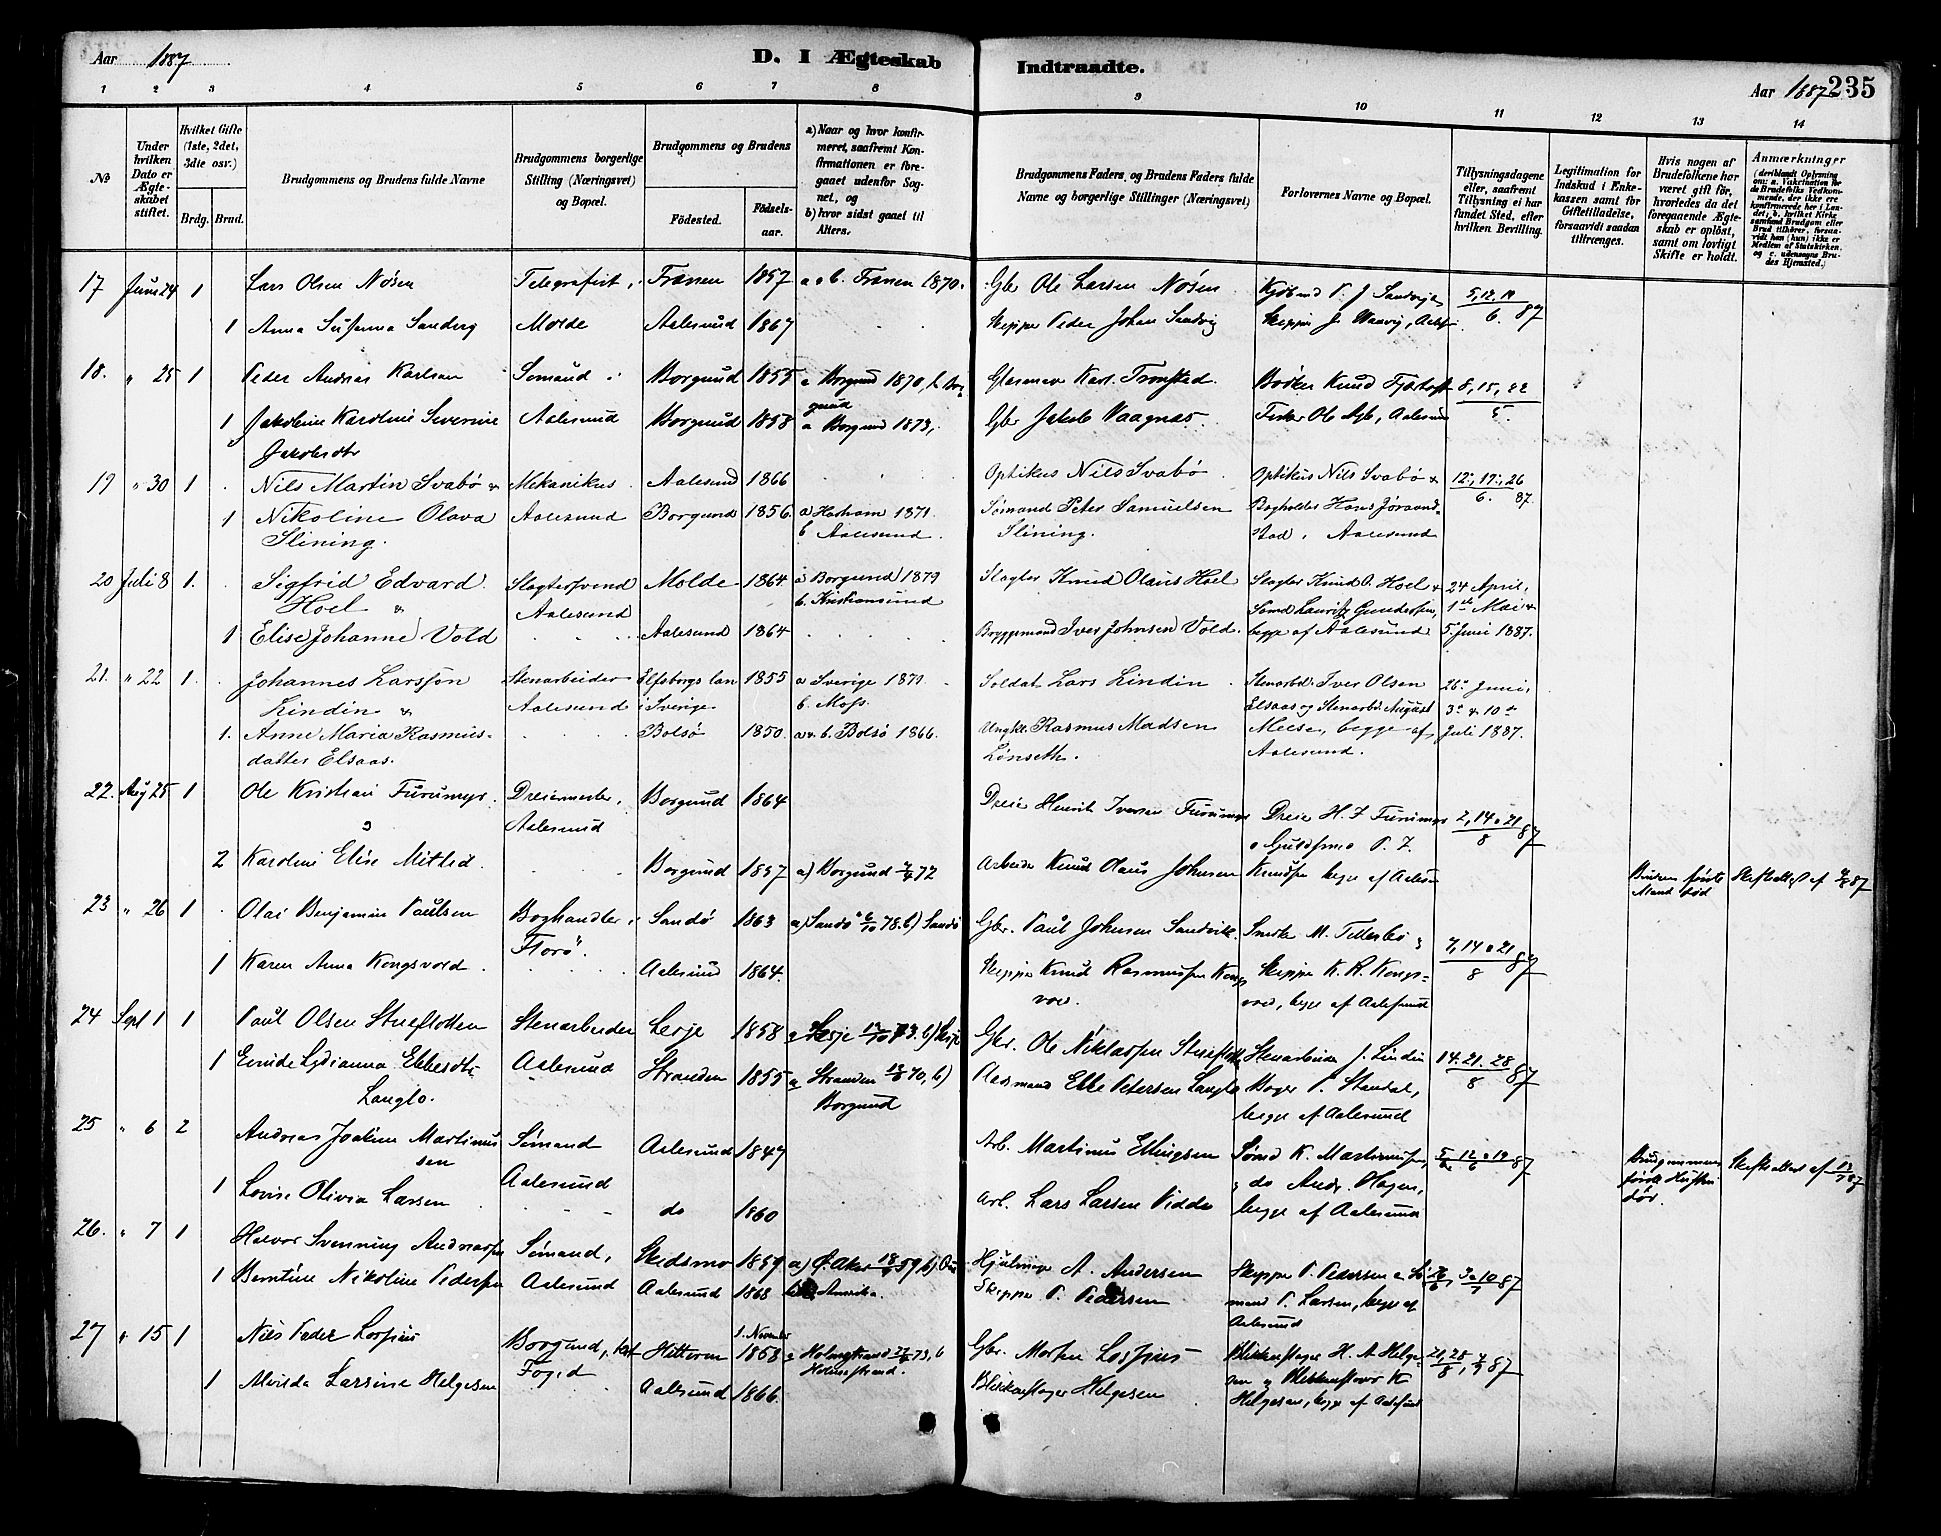 Aar 1887
D. I Ægteskab Indtraadte.
Aar 1887 235
1 2 3 4 5 6 7 8 9 10 11 12 13 14
No
Under hvilken Dato er Ægteskabet stiftet.
Hvilket Gifte (1ste, 2det, 3die osv.)
Brdg. Brud.
Brudgommens og Brudens fulde Navne
Brudgommens borgerlige Stilling (Næringsvei) og Bopæl.
Brudgommens og Brudens
Födested. Födselsaar.
a) Naar og hvor konfirmeret, saafremt Konfirmationen er foregaaet udenfor Sognet, og
b) hvor sidst gaaet til Alters.
Brudgommens Faders og Brudens Faders fulde Navne og borgerlige Stillinger (Næringsvei)
Forlovernes Navne og Bopæl.
Tillysningsdagene eller, saafremt Tillysning ei har fundet Sted, efter hvilken Bevilling.
Legitimation for Indskud i Enkekassen samt for Giftetilladelse, forsaavidt saadan tiltrænges.
Hvis nogen af Brudefolkene har været gift för, hvorledes da det foregaaende Ægteskab er oplöst, samt om lovligt Skifte er holdt.
Anmærkninger
17 Juni 24 1 Lars Olsen Nösen Telegrafist, Frænen 1857 a o b. Frænen 1870. Gbr Ole Larsen Nösen Kjöbmd P. J. Sandvig 5, 12, 19
1 Anna Susanna Sandvig Molde Aalesund 1867 Skipper Peder Johan Sandvig Skipper J. 6. 87
18. " 25 1 Peder Andreas Karlsen Sömand Borgund 1855 a Borgund 1870, b Borgund Karl Tronstad. Bödker Knud Fjörtoft 8, 15, 22
1 Jakobine Karoline Severine Aalesund Borgund 1858 a Borgund 1873, Gbr Jakob Vaagnæs. Fisker Ole Aalesund 5.
Jakobsdtr
19 " 30 1 Nils Martin Svabö & Mekanikus Aalesund 1866 Optikus Nils Svabö Optikus Nils Svabö & 12, 19, 26
1 Nikoline Olava Aalesund Borgund 1856. a Haram 1871. Sömand Peter Samuelsen Bogholder Hans Jöraand- 6. 87.
Slining. b Aalesund. Slining. stad, Aalesund
20 Juli 8 1. Sigfrid Edvard Slagtersvend Molde 1864 a Borgund 1879 Slagter Knud Olaus Hoel Slagter Knud O. Hoel & 24 April,
Hoel & Aalesund b. Kristiansund Sömd Lauritz Gundersen, 1ste Mai &
1 Elise Johanne Vold Aalesund 1864 Bryggemand Iver Johnsen Vold. begge af Aalesund 5. Juni 1887.
21. " 22 1. Johannes Larsson Stenarbeider Elfsborgs län 1855 a Sverige 1871. Soldat Lars Lindin Stenarbdr. Iver Olsen 26. Juni,
Lindin & Aalesund i Sverige b. Moss. Elsaas og Stenarb. August 3. & 10.
1. Anne Maria Rasmus- Bolsö 1850. a & b. Bolsö 1866. Ungkl. Rasmus Madsen begge af Juli 1887.
datter Elsaas. Lönseth. Aalesund.
22. Aug 25 1 Ole Kristian Furumyr Dreiermester, Borgund 1864 Dreier Henrik Iversen Furumyr Dreier H. I. Furumyr 7, 14 o 21
Aalesund o Guldsmed P. Z. 8 87
2 Karoline Elise Mitlid Borgund 1857 a) Borgund 72 Arbeider Knud Olaus Johnsen Knudsen begge af Aalesund Brudens förste Skifteattest af 87
Mand död
23 " 26 1 Olai Benjamin Paulsen Boghandler, Sandö 1863 a) Sandö 6/10 78. b) Sandö Gbr. Paul Johnsen Sandvik. M. Tillerbö 7, 14 o 21
1 Karen Anna Kongsvold Florö. Aalesund 1864. Skipper Knud Rasmussen Kongs- Skipper K. R. Kongs- 8 87
vold. vold, begge af Aalesund
24 Sept 1 1 Paul Olsen Stuefloten Stenarbeider Lesje 1858 a Lesje 73. b) Lesje Gbr. Ole Niklassen Stuefloten Stenarbeider J. Lindin 14. 21. 28
1 Lydianna Ebbesdtr Aalesund Stranden 1855 a Stranden 70, b) Aasmand Ebbe Petersen Langlo Bager P. Standal, 8 87
Langlo. Borgund begge af Aalesund
25 " 6 2 Andreas Joakim Martinus Sömand Aalesund 1847 Arb. Martinus Ellingsen Sömd K. Martinussen, 12 o 19 87 Brudgommens Skifteattest af
sen Aalesund do Andr. Hagen, förste Hustru
1 Lovise Olivia Larsen do 1860 Arb. Lars Larsen Vidde begge af Aalesund död.
26. " 7 1 Halvor Svenning Andreassen Sömand, Skedsmo 1859 a) Ö. Aker Hjulmager A. Andersen Skipper P. Pedersen o Sö 3 o 10 87
1 Berntine Nikoline Pedersen Aalesund Aalesund 1868 Amerika. Skipper P. Pedersen mand P. Larsen, begge af
Aalesund
27 " 15 1 Nils Peder Lossius Borgund, 1. November Hitteren 1858 a Holmestrand 73, b Gbr. Morten Lossius Blikkenslager H. A. Helge 21, 28
1 Alvilda Larsine Helgesen Foged Aalesund 1866. Holmestrand. Blikkenslager Helgesen sen o Blikkenslager K 8, 87
Helgesen, begge af Aalesund